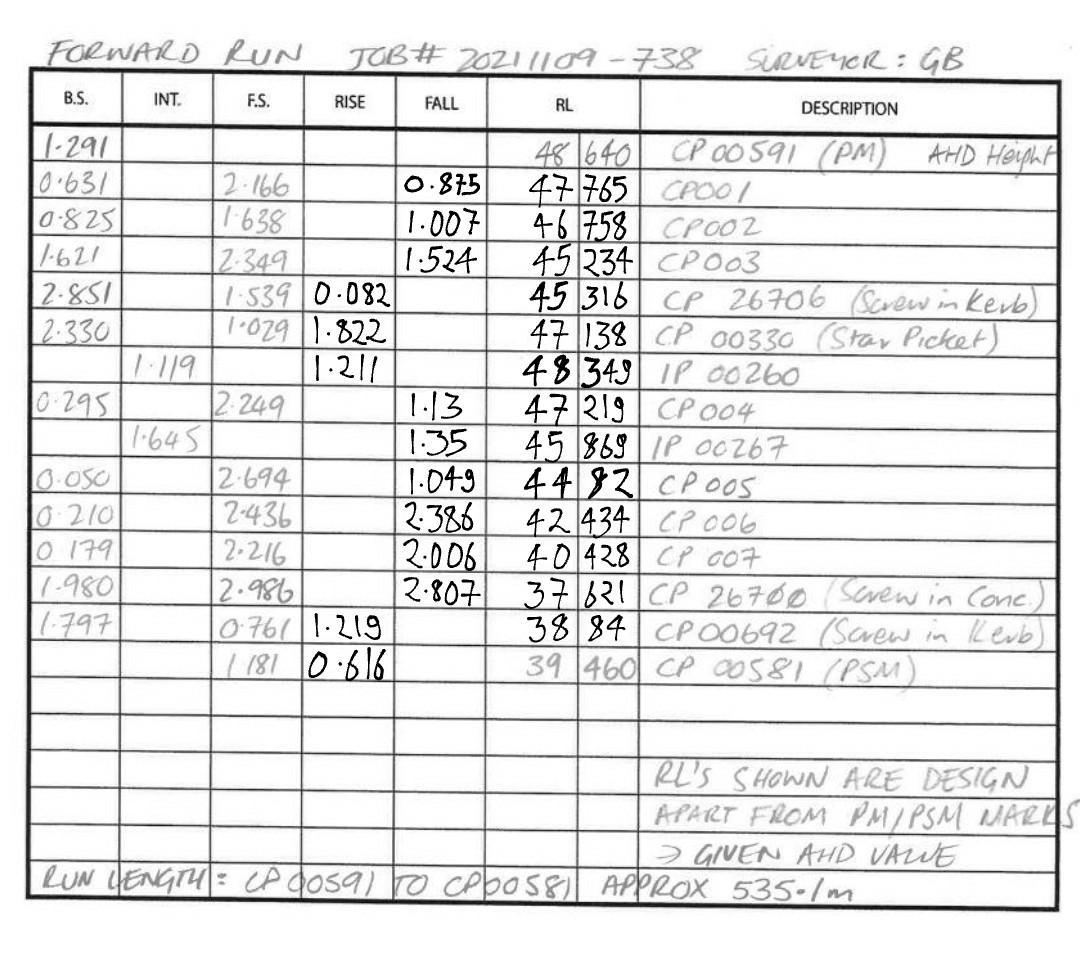 FORWARD RUN JOB# 20211109-738 SURVEYOR: GB
B.S. INT. F.S. RISE FALL RL DESCRIPTION
1.291 48 640 CP 00591 (PM) AHD Height
0.631 2.166 0.875 47 765 CP001
0.825 1.638 1.007 46 758 CP002
1.621 2.349 1.524 45 234 CP003
2.851 1.539 0.082 45 316 CP 26706 (Screw in Kerb)
2.330 1.029 1.822 47 138 CP 00330 (Star Picket)
1.119 1.211 48 349 IP 00260
0.295 2.249 1.13 47 219 CP004
1.645 1.35 45 869 IP 00267
0.050 2.694 1.049 44 82 CP005
0.210 2.436 2.386 42 434 CP 006
0 179 2.216 2.006 40 428 CP 007
1.980 2.986 2.807 37 621 CP 26700 (Screw in Conc.)
1.797 0.761 1.219 38 84 CP00692 (Screw in Kerb)
1 181 0.616 39 460 CP 00581 (PSM)
RL'S SHOWN ARE DESIGN
APART FROM PM/PSM MARKS
→ GIVEN AHD VALUE
RUN LENGTH = CP00591 TO CP00581 APPROX 535.1m